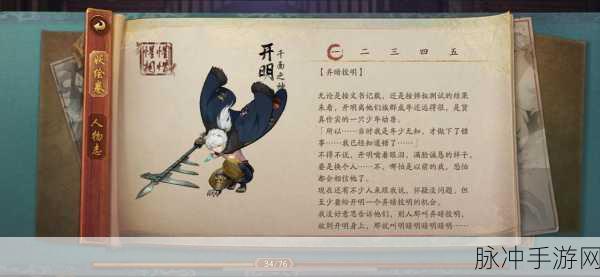 妖绘卷
人物志
开明
千面之神
一 二 三 四 五
【弃暗投明】
无论是按文书记载,还是按辨拟测试的结果
来看,开明离他们族群成年还远得很,是货
真价实的一只少年幼兽。
「所以……当时我是年少无知,才做下了错
事……我已经知道错了……」
不得不说,开明噙着眼泪,满脸诚恳的样子,
要是换个人……不,哪怕是以前的我,恐怕
都会相信他了。
现在还有不少人来跟我说,怀疑没问题,但
至少要给开明一个弃暗投明的机会。
我没好意思告诉他们,别人那叫弃暗投明,
放到开明身上,那就叫明暗明暗明暗……
34/76
脉冲手游网